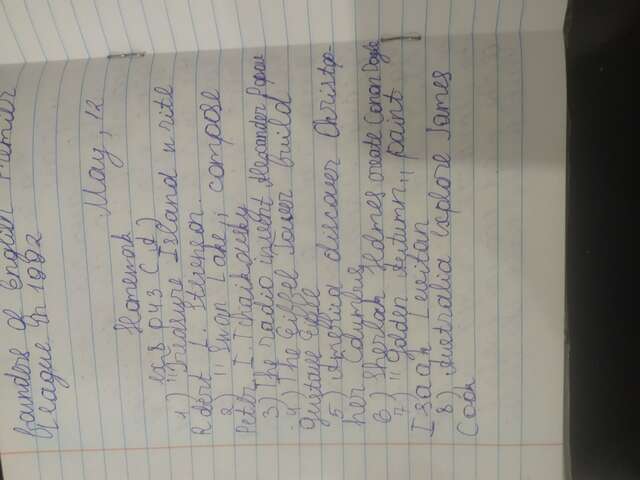 faunders of English Premier
League in 1992
May, 12
Homework
ex 8 p 43 (d)
1) "Treasure Island write
Robert L. Stevenson.
2) "Swan Lake,, compose
Peter I Tchaikovsky
3) The radio invent Alexander Popov
4) The Eiffel tower build
Gustave Eiffle
5) America discover Christo-
her Columbus
6) Sherlok Holmes create Conan Doyle
7) "Golden Autumn,, paint
Isaak Levitan
8) Australia explore James
Cook